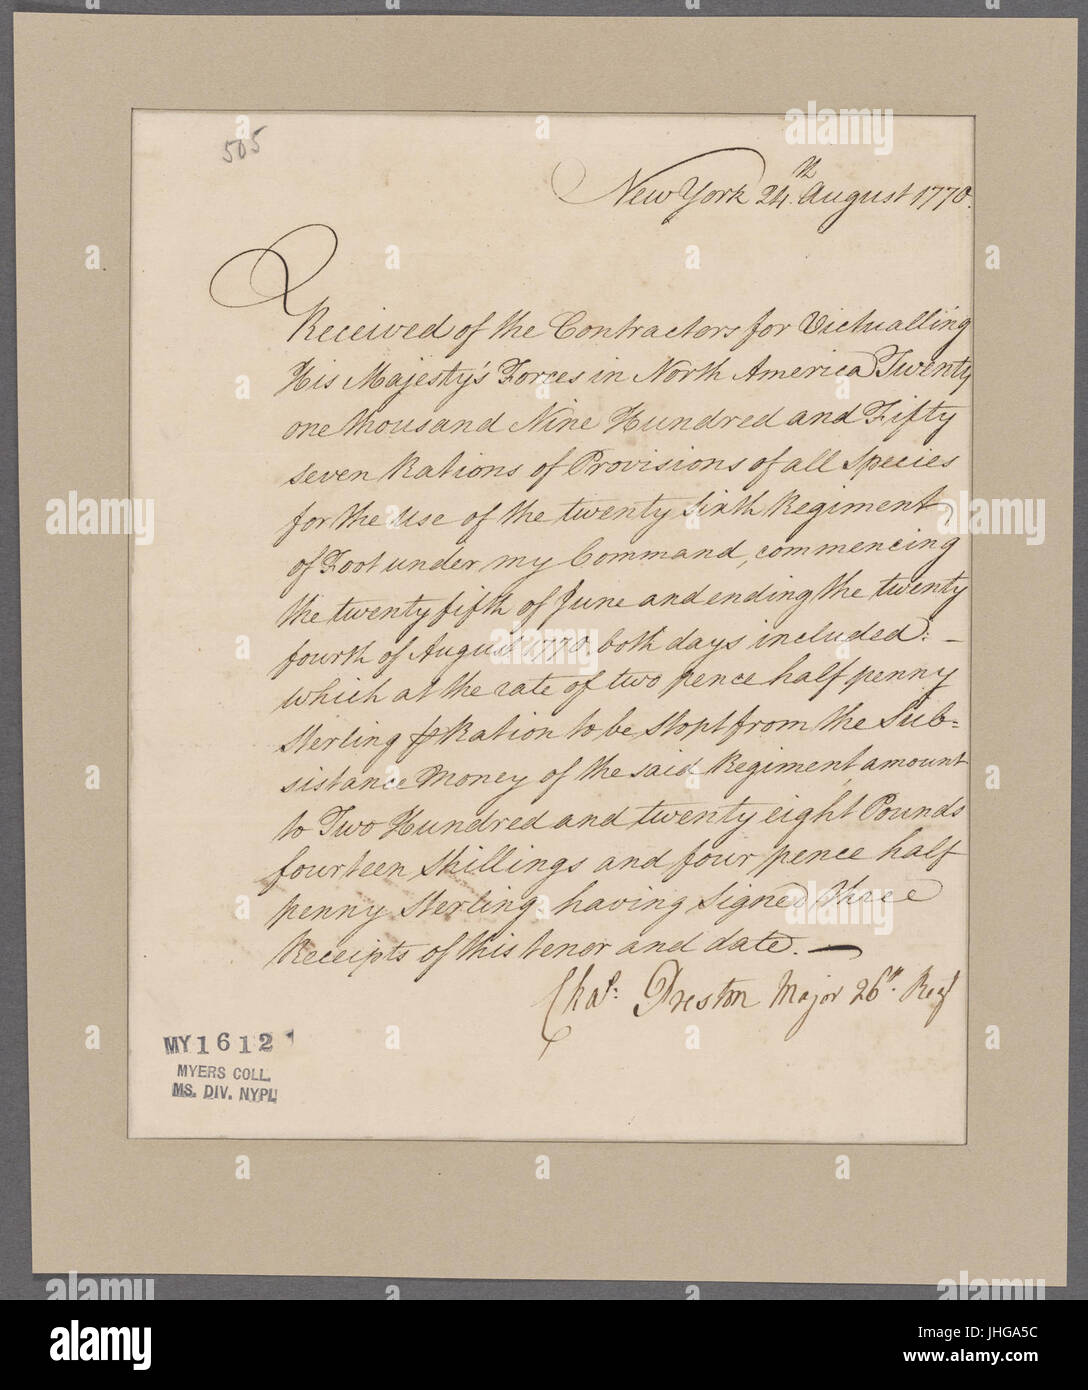 505
New York 24.th August 1770.
Received of the Contractors for Victualling
His Majesty's Forces in North America Twenty
one thousand Nine Hundred and Fifty
seven Rations of Provisions of all Species
for the Use of the twenty sixth Regiment
of Foot under my Command, commencing
the twenty fifth of June and ending the twenty
fourth of August 1770. both days included. –
which at the rate of two pence half penny
Sterling ⅌ Ration to be stopt from the Sub=
sistance Money of the said Regiment, amount
to Two Hundred and twenty eight Pounds
fourteen Shillings and four pence half
penny Sterling, having signed three
Receipts of this tenor and date. —
Chas: Preston Major 26th. Regt
MY 1612
MYERS COLL.
MS. DIV. NYPL
alamy
alamy stock photo
JHGA5C
www.alamy.com